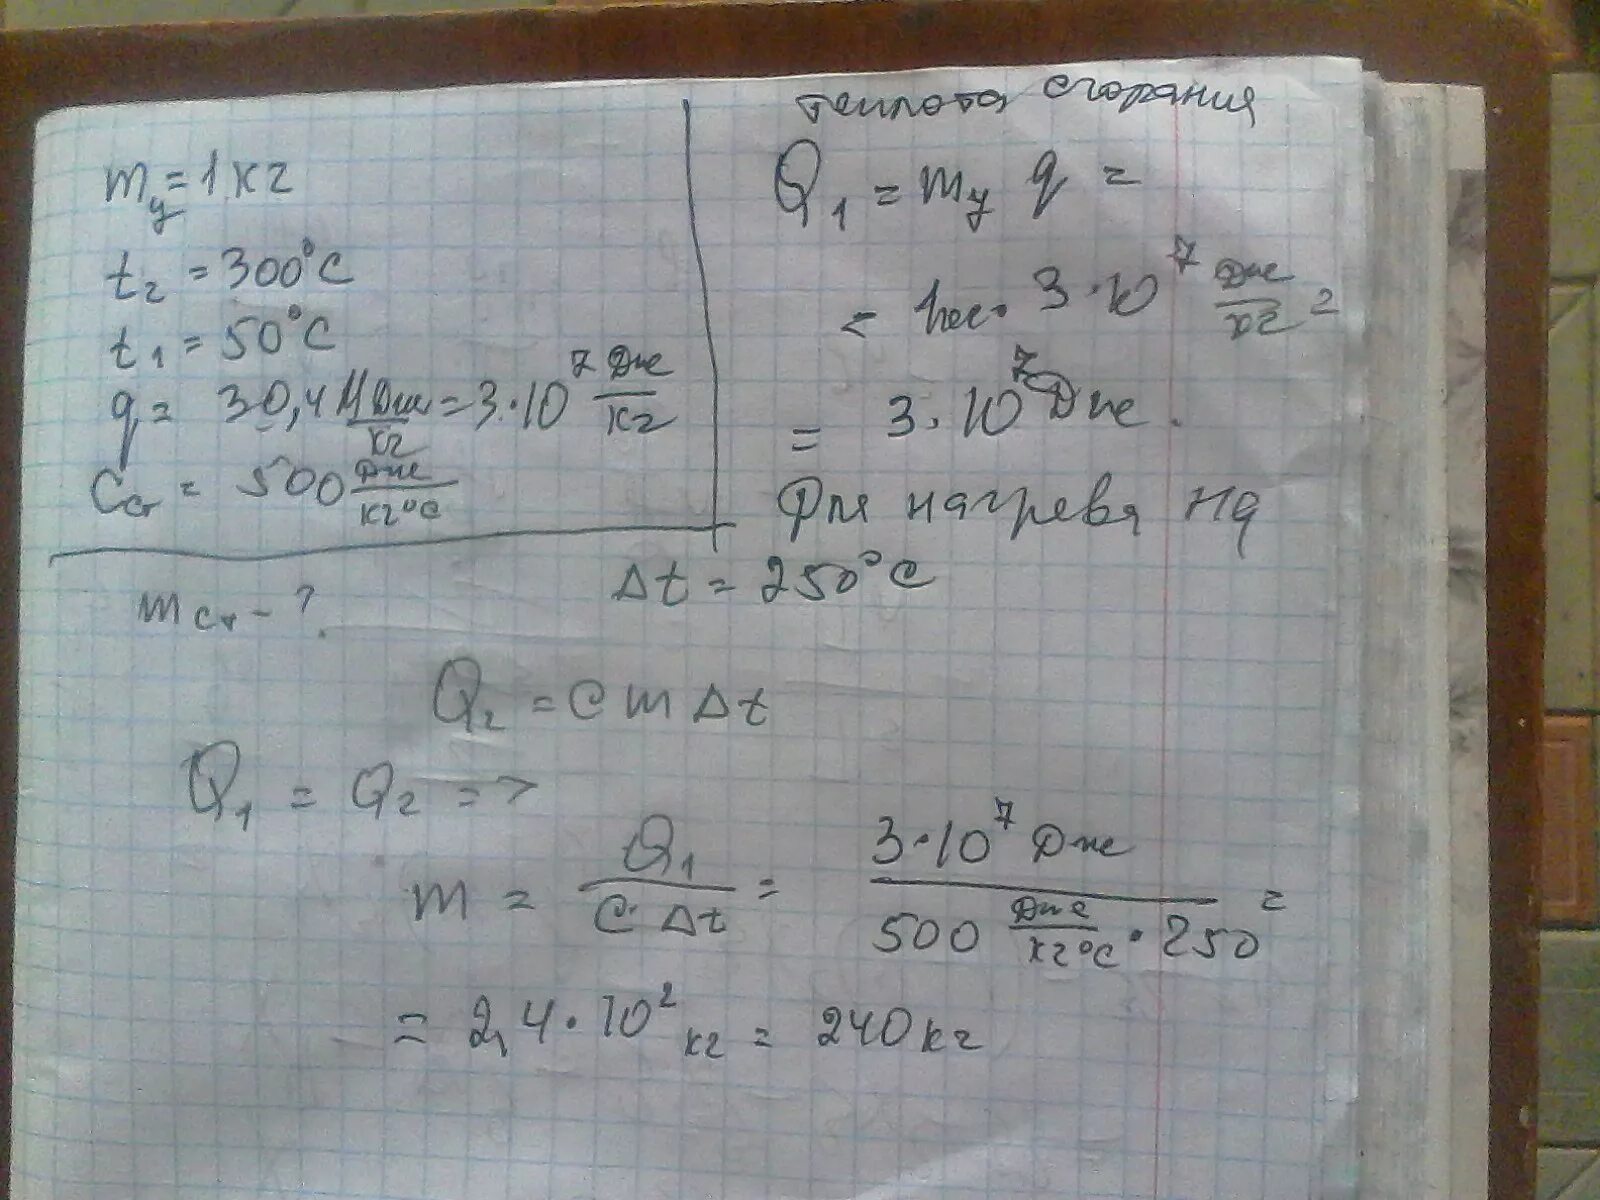 m_у = 1 кг
t₂ = 300°С
t₁ = 50°С
q = 30,4 МДж/кг = 3·10⁷ Дж/кг
C_ст = 500 Дж/кг°С
m_ст - ?
теплота сгорания
Q₁ = m_у q =
= 1кг · 3·10⁷ Дж/кг =
= 3·10⁷ Дж.
Для нагрева на
Δt = 250°С
Q₂ = c m Δt
Q₁ = Q₂ =>
m = Q₁/(c·Δt) = 3·10⁷ Дж/(500 Дж/кг°С · 250) =
= 2,4·10² кг = 240 кг